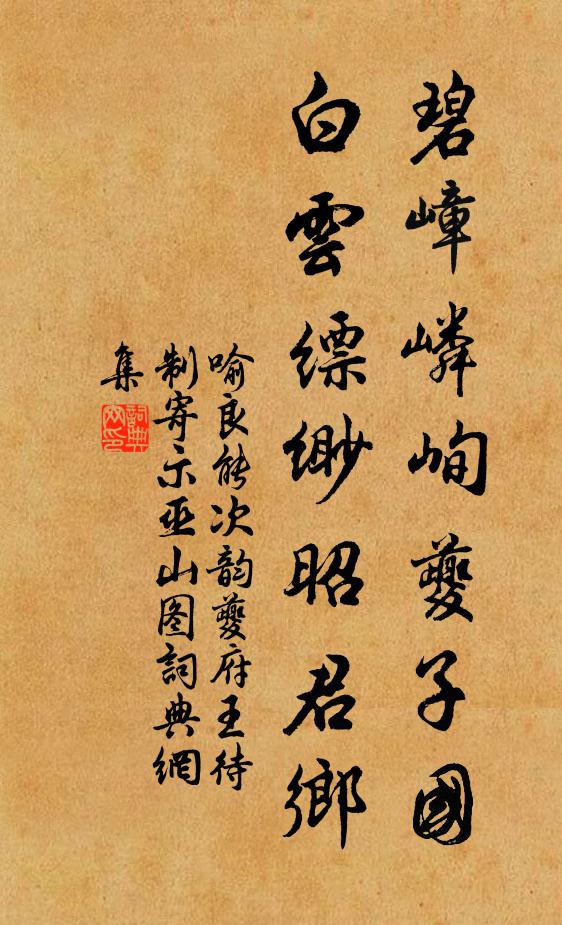 碧嶂嶙峋夔子國
白雲縹緲昭君鄉
喻良能次韵夔府王待
制寄示巫山图詞典網
集
詞典
网印